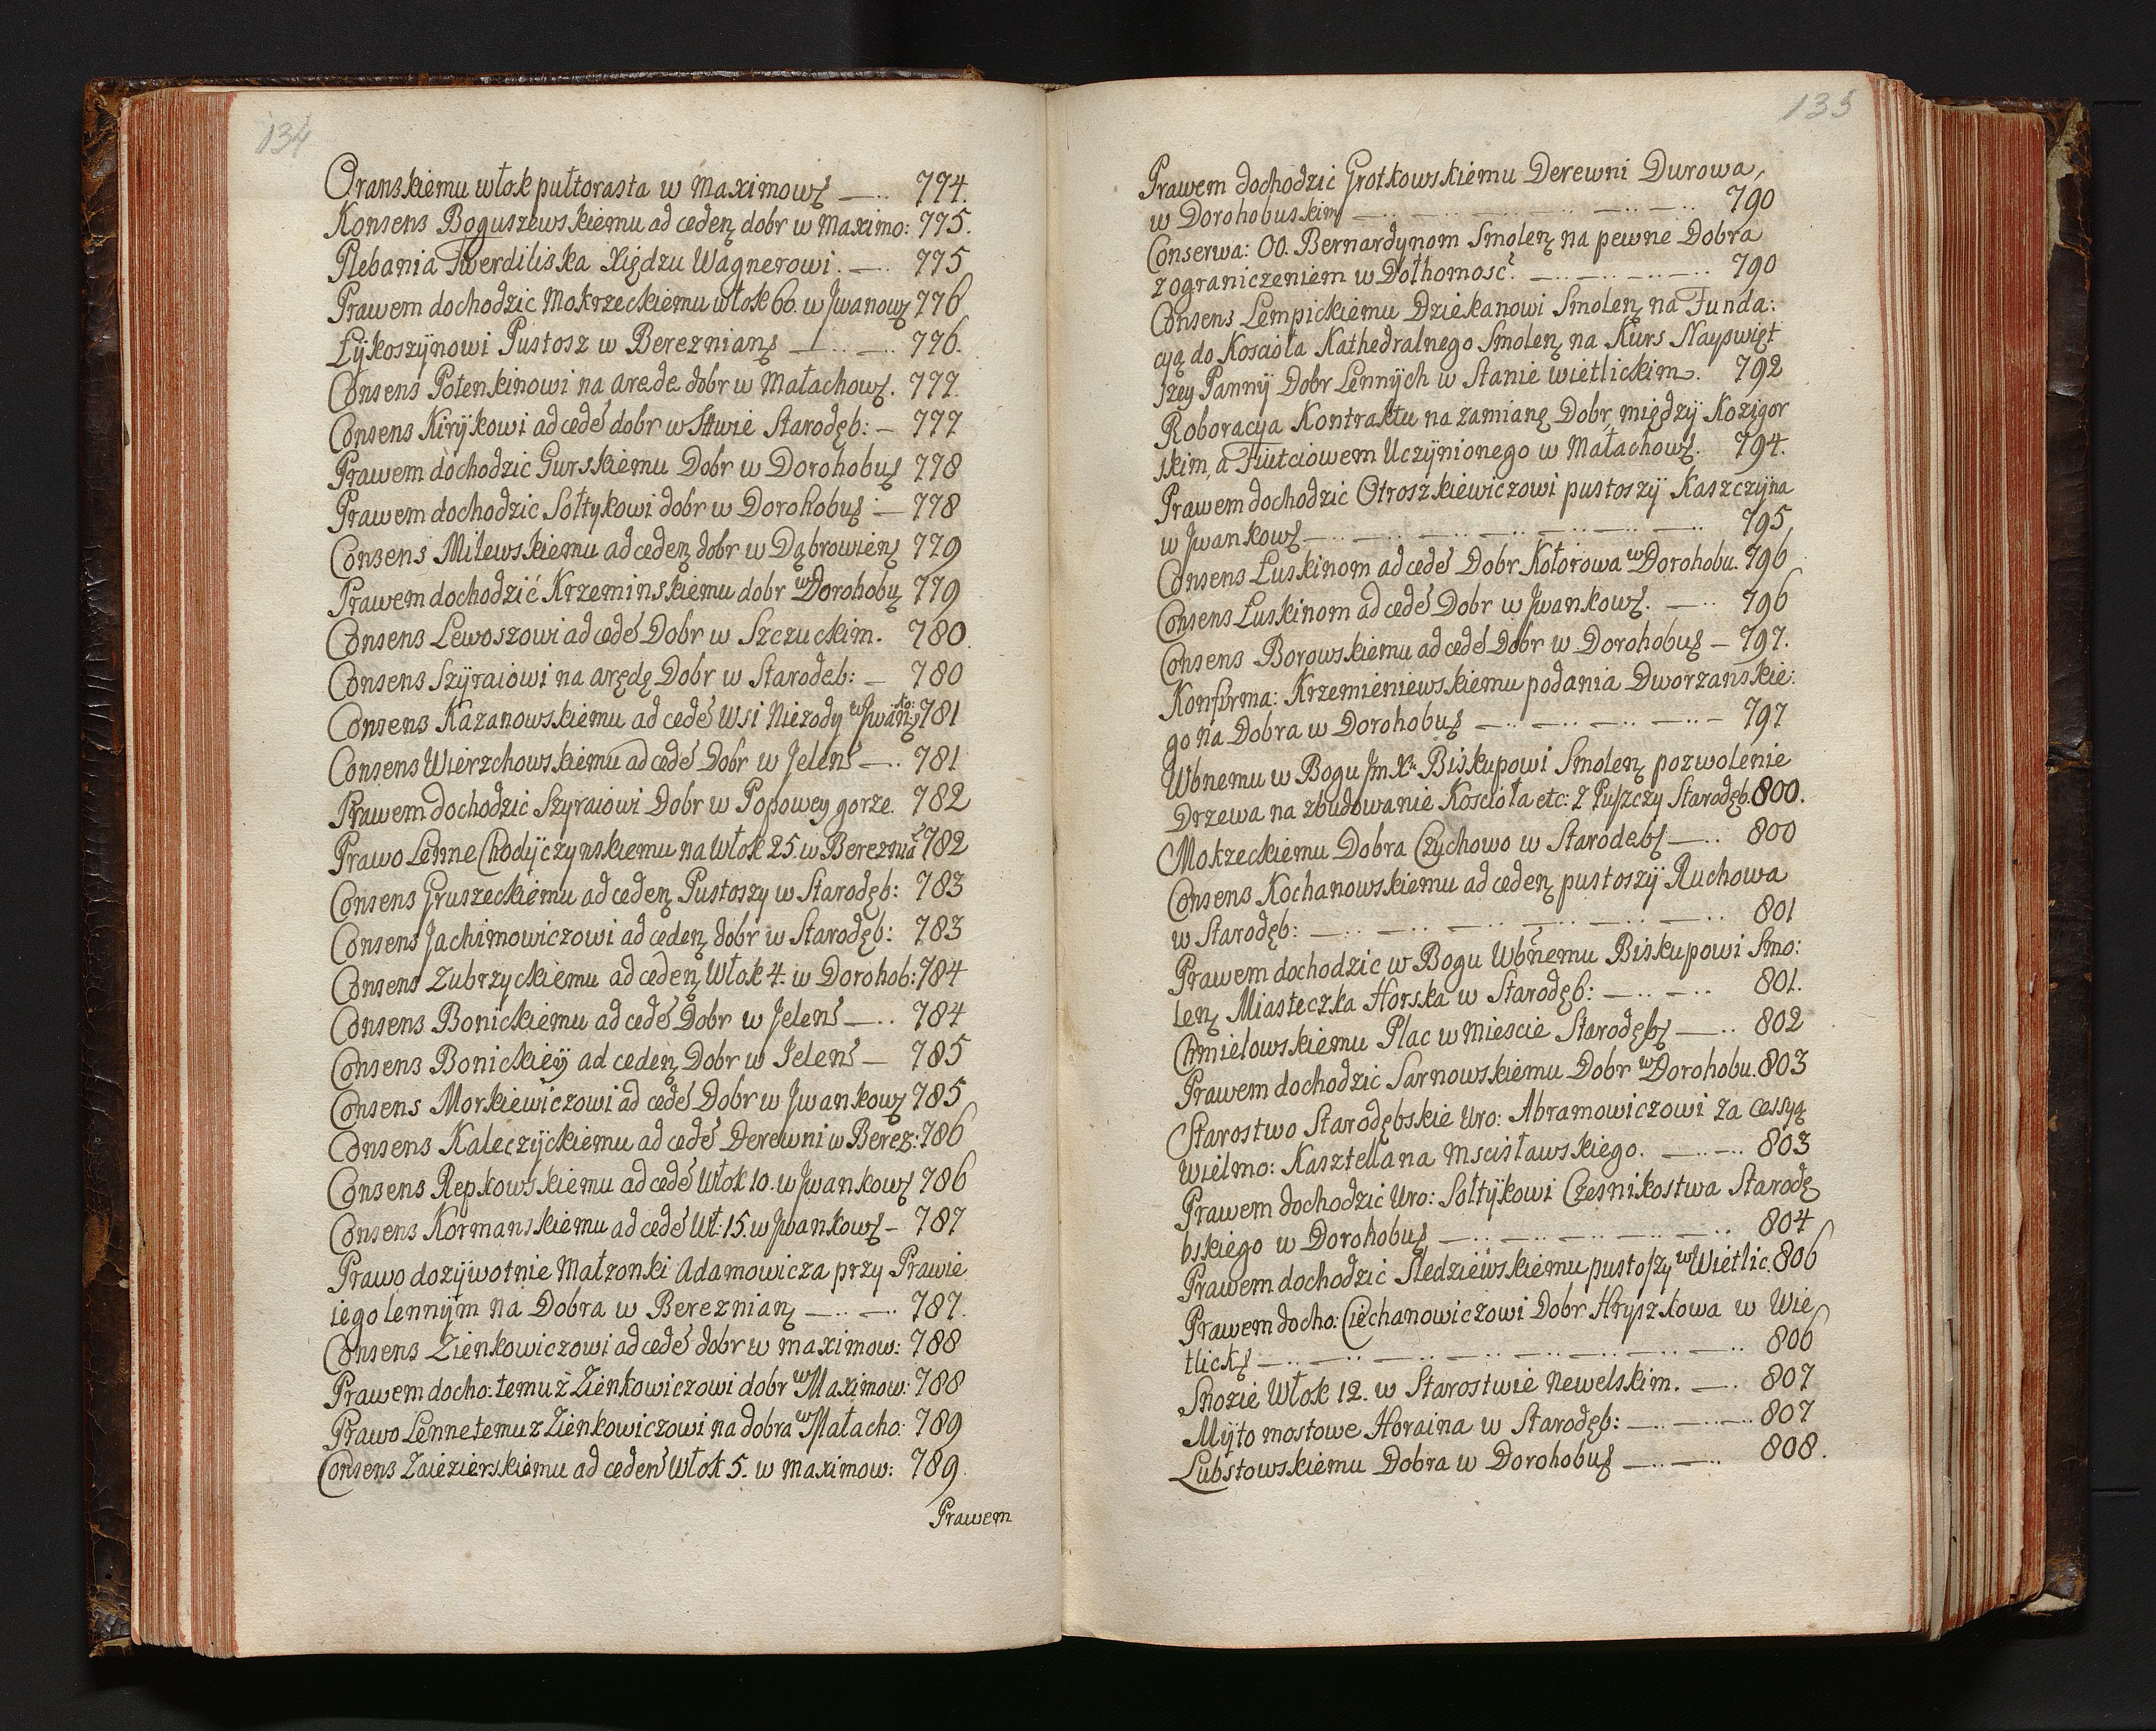 134
Oranskiemu włok pułtorasta w Maximows —.. 774.
Konsens Boguszewskiemu ad ceden dobr w Maximo: 775.
Plebania Twerdiliska Xiędzu Wagnerowi. —.. 775
Prawem dochodzic Mokrzeckiemu włok 60. w Jwanows 776
Łÿkoszÿnowi Pustosz w Bereznians —.. —.. 776.
Consens Potenkinowi na arede dobr w Małachows. 777.
Consens Kirÿkowi ad cedē dobr w Sttwie Starodęb: — 777
Prawem dochodzic Gurskiemu Dobr w Dorohobus 778
Prawem dochodzic Sołtykowi dobr w Dorohobus — 778
Consens Milewskiemu ad ceden dobr w Dąbrowiens 779
Prawem dochodzić Krzeminskiemu dobr w Dorohobus 779
Consens Lewoszowi ad cedē Dobr w Szczuckim. 780.
Consens Szÿraiowi na arędę Dobr w Starodeb: — 780
Consens Kazanowskiemu ad cedē Wsi Niezody w Jwanko: 781
Consens Wierzchowskiemu ad cedē Dobr w Jelens —.. 781
Prawem dochodzic Szyraiowi Dobr w Popowey gorze. 782
Prawo Lenne Chodÿczynskiemu na Włok 25. w Berezniā 782
Consens Gruszeckiemu ad ceden Pustoszy w Starodęb: 783
Consens Jachimowiczowi ad ceden dobr w Starodęb: 783
Consens Zubrzyckiemu ad ceden Włok 4. w Dorohob: 784
Consens Bonickiemu ad cedē Dobr w Jelens —.. 784
Consens Bonickieÿ ad ceden Dobr w Jelens — 785
Consens Morkiewiczowi ad cedē Dobr w Jwankows 785
Consens Kaleczÿckiemu ad cedē Derewni w Berez: 786
Consens Repkowskiemu ad cedē Włok 10. w Jwankows 786
Consens Kormanskiemu ad cedē Wł: 15. w Jwankows – 787
Prawo dozÿwotnie Małzonki Adamowicza przy Prawie
iego lennÿm na Dobra w Bereznians —.. —.. 787.
Consens Zienkowiczowi ad cedē dobr w maximow: 788
Prawem docho: temuz Zienkowiczowi dobr w Maximow: 788
Prawo Lenne temuz Zienkowiczowi na dobra w Małacho: 789
Consens Zaiezierskiemu ad ceden Włok 5. w maximow: 789.
Prawem
135
Prawem dochodzic Grotkowskiemu Derewni Durowa,
w Dorohobuskim —.. —.. —.. —.. —.. —.. 790
Conserwa: OO. Bernardynom Smolens na pewne Dobra
z ograniczeniem w Dołhomosc. —.. —.. —.. —.. 790
Consens Lempickiemu Dziekanowi Smolens na Funda:
cyą do Koscioła Kathedralnego Smolens na Kurs Nayswięt
szey Pannÿ Dobr Lennÿch w Stanie wietlickim. 792
Roboracya Kontraktu na zamianę Dobr, międzÿ Kozigor
skim, a Fiutciowem Uczÿnionego w Małachows. 794.
Prawem dochodzic Otroszkiewiczowi pustoszÿ Kaszczÿna
w Jwankows —.. —.. —.. —.. —.. —.. —.. 795,
Consens Łuskinom ad cedē Dobr Kotorowa w Dorohobu. 796
Consens Łuskinom ad cedē Dobr w Jwankows. —.. 796
Consens Borowskiemu ad cedē Dobr w Dorohobus – 797.
Konfirma: Krzemieniewskiemu podania Dworzanskie:
go na Dobra w Dorohobus —.. —.. —.. —.. — 797
Wbnemu w Bogu Jm Xu Biskupowi Smolens pozwolenie
Drzewa na zbudowanie Koscioła etc: z Puszczy Starodęb. 800.
Mokrzeckiemu Dobra Czychowo w Starodebs —.. 800
Consens Kochanowskiemu ad ceden pustoszÿ Ruchowa
w Starodęb: —.. —.. —.. —.. —.. —.. 801
Prawem dochodzic w Bogu Wbnemu Biskupowi Smo:
lens Miasteczka Horska w Starodęb: —.. —.. 801.
Chmielowskiemu Plac w Miescie Starodębs —.. 802
Prawem dochodzic Sarnowskiemu Dobr w Dorohobu. 803
Starostwo Starodębskie Uro: Abramowiczowi za cessyą
Wielmo: Kasztellana Mscisławskiego. —.. —.. 803
Prawem dochodzic Uro: Sołtÿkowi Czesnikostwa Starodę
bskiego w Dorohobus —.. —.. —.. —.. —.. 804
Prawem dochodzic Sledziewskiemu pustoszy w Wietlic. 806
Prawem docho: Ciechanowiczowi Dobr Hryszkowa w Wie
tlicks —.. —.. —.. —.. —.. —.. —.. —.. 806
Snozie Włok 12. w Starostwie Newelskim. —.. 807
Mÿto mostowe Horaina w Starodęb: —.. —.. —.. 807
Lubstowskiemu Dobra w Dorohobus —.. —.. 808.